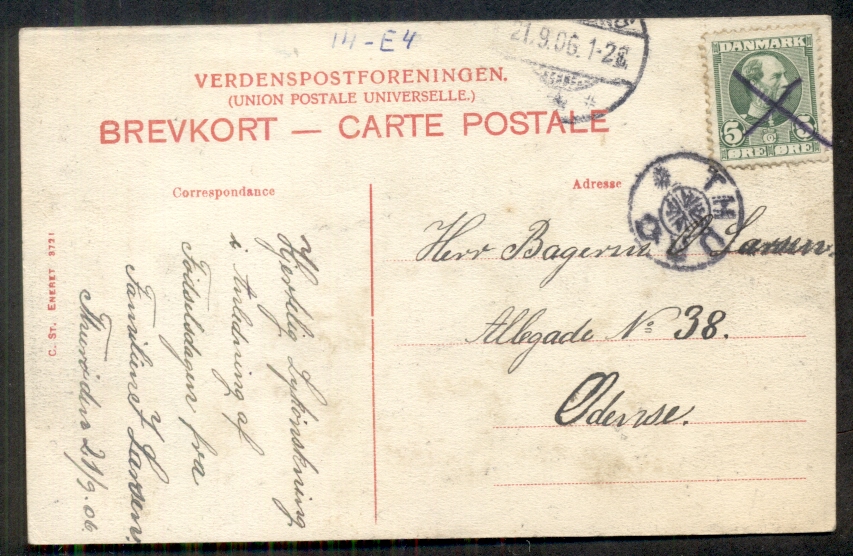 14-E4
21.9.06.1-2E.
DANMARK
5 5
ØRE ØRE
VERDENSPOSTFORENINGEN.
(UNION POSTALE UNIVERSELLE.)
BREVKORT — CARTE POSTALE
Correspondance
Adresse
THURØ
Herr Bagerm Larsen.
Allegade № 38.
Odense.
Hjertelig Lykønskning
i Anledning af
Födselsdagen fra
Familien Larsen.
Thurö den 21/9. 06.
C. ST. ENERET 3721